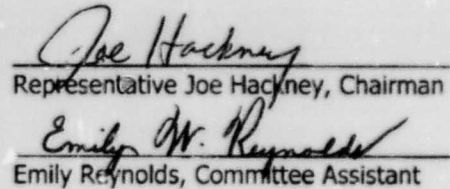 Joe Hackney
Representative Joe Hackney, Chairman
Emily W. Reynolds
Emily Reynolds, Committee Assistant